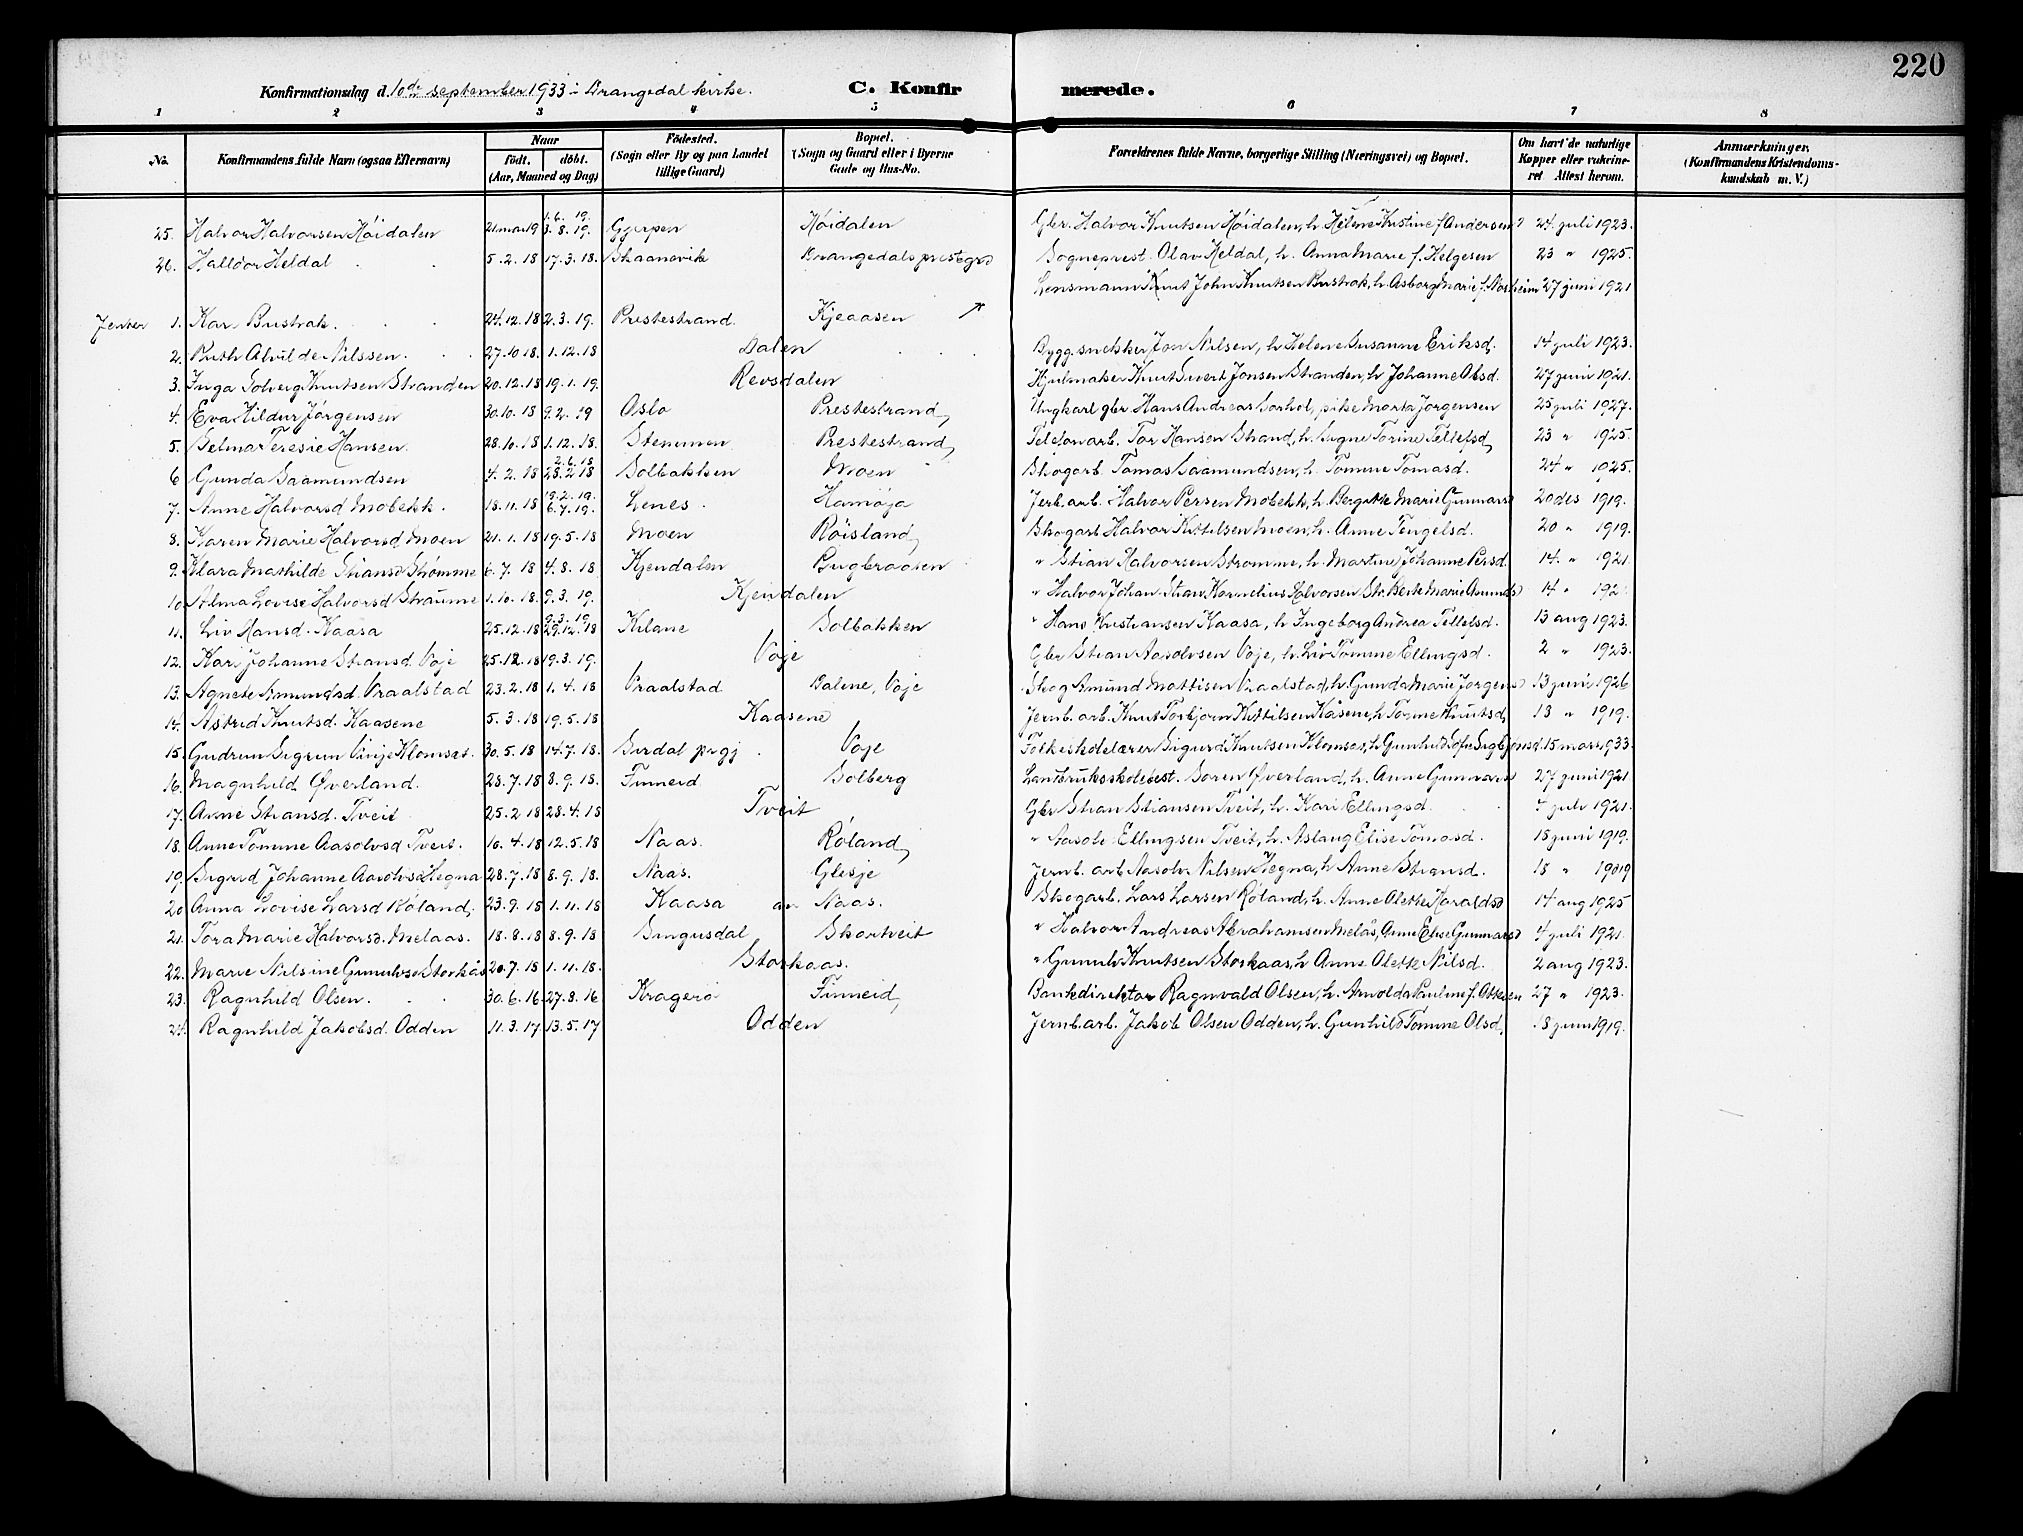 220
Konfirmationsdag d. 10de september 1933 i Drangedal kirke.
C. Konfirmerede.
1 2 3 4 5 6 7 8
No. Konfirmandens fulde Navn (ogsaa Efternavn) Naar födt. döbt. (Aar, Maaned og Dag) Födested. (Sogn eller By og paa Landet tillige Gaard) Bopæl. (Sogn og Gaard eller i Byerne Gade og Hus-No. Forældrenes fulde Navne, borgerlige Stilling (Næringsvei) og Bopæl. Om havt de naturlige Kopper eller vakcineret Attest herom. Anmærkninger. (Konfirmandens Kristendomskundskab m. V.)
25. Halvor Halvorsen Höidalen 21 mar 19 1.6. 19. 3. 8. 19. Gjerpen Höidalen Gbr. Halvor Knutsen Höidalen, h. Helene Kristine f. Andersen 24 juli 1923.
26. Halldor Heldal 5. 2. 18 17. 3. 18. Skaanevik Drangedals prestegrd Sogneprest. Olav Heldal, h. Anna Marie f. Helgesen 23 " 1925.
Jenter 1. Kari Bustrak. 24. 12. 18 2. 3. 19. Prestestrand. Kjeaasen Lensmann Knut John Knutsen Bustrak, h. Asborg Marie f. 27 juni 1921
2. Ruth Alvilde Nilssen. 27. 10 18. 1. 12. 18 Dalen Bygg.snekker Jon Nilsen, h. Helene Susanne Eriksd. 14 juli 1923.
3. Inga Solveig Knutsen Stranden 20. 12. 18 19. 1. 19. Revsdalen Hjulmaker Knut Sivert Jonsen Stranden, h. Johanne Olsd. 27 juni 1921.
4. Eva Hildur Jörgensen 30. 10. 18 9. 2. 19 Oslo Prestestrand, Ungkarl gbr. Hans Andreas, pike Marta Jörgensen 25 juli 1927.
5. Selma Teresie Hansen. 28. 10. 18 1. 12. 18. Stemmen Prestestrand, Telefonarb. Tor Hansen Strand, h. Signe Torine Tellefsd, 23 " 1925.
6 Gunda Saamundsen 4. 2. 18 2. 6. 18 28. 2. 18 Solbakken Moen Skogarb. Tomas Saamundsen, h. Tomine Tomasd. 24 " 1925.
7. Anne Halvorsd Mobekk. 18. 11. 18 19. 2. 19. 6. 7. 19. Lenes. Hamöja Jerb.arb. Halvor Persen Mobekk, h. Bergitte Marie Gunnarsd 20 des 1919.
8. Karen Marie Halvorsd. Moen 21. 1. 18 19. 5. 18 Moen Röisland, Skogarb. Halvor Kittilsen Moen, h. Anne Tengelsd. 20 " 1919.
9. Klara Mathilde Stiansd Strömme 6. 7. 18 4. 8. 18 Kjendalen Bugbraaten " Stian Halvorsen Stromme, h. Martine Johanne Persd. 14. " 1921
10. Alma Lovise Halvorsd Straume 1. 10. 18 9. 3. 19. Kjendalen " Halvor Johan Stian Kornelius Halvorsen Str. Berte Marie 14 " 192
11. Liv Hansd. Kaasa 25. 12. 18 9. 3. 19 29. 12. 18 Kilane Solbakken " Hans Kristiansen Kaasa, h. Ingeborg Andrea Tellefsd. 13 aug 1923.
12. Kari Johanne Stiansd. Voje 25. 12. 18 19. 3. 19. Voje Gbr Stian Aasolvsen Voje, h. Liv Tomine Ellingsd. 2 " 1923.
13. Agnete Amundsd. Vraalstad 23. 2. 18 1. 4. 18 Vraalstad Balene, Voje Skog Amund Mattisen Vraalstad, h. Gunda Marie Jorgensd 13 juni 1926
14. Astrid Knutsd. Kaasene 5. 3. 18 19. 5. 18 Kaasene Jernb. arb. Knut Torbjorn Kittilsen Kåsene, h. Tomine Knutsd, 18 " 1919.
15. Gudrun Sigrun Vivje Klomsæt. 30. 5. 18 14. 7. 18. Sirdal prgj. Voje Folkeskolelærer Sigurd Knutsen Klomsæt, h. Gunhild Sofie 15 mars 1933.
16. Magnhild Øverland. 28. 7. 18 8. 9. 18. Finneid Solberg Lantbruksskolebest. Soren Øverland, h. Anne Gunnarsd 27 juni 1921
17. Anne Stiansd. Tveit 25. 2 18 28. 4. 18 Tveit Gbr Stian Stiansen Tveit, h. Kari Ellingsd. 4 juli 1921.
18. Anne Tomine Aasolvsd Tveit. 10. 4. 18 12. 5. 18 Naas. Röland, " Aasolv Ellingsen Tveit, h. Aslaug Elise Tomasd. 18 juni 1919.
19. Sigrid Johanne Aasolvsd Hegna 28. 7. 18 8. 9. 18. Naas. Glesje Jernb. arb Aasolv Nilsen Hegna, h. Anne Stiansd. 18 " 1919
20 Anna Lovise Larsd Röland. 23. 9. 18 1. 11. 18 Kaasa av Naas. Skogarb. Lars Larsen Röland, h. Anne Olette Haraldsd 14 aug 1925
21. Tora Marie Halvorsd. Melaas. 18. 8. 18 8. 9. 18 Singusdal Skortveit " Halvor Andreas Abrahamsen Melås, Anne Elise Gunnarsd 4 juli 1921.
22. Marie Nilsine Gunulvsd Storkås 20. 7. 18 1. 11. 18. Storkaas. " Gunulv Knutsen Storkaas, h. Anne Olette Nilsd. 2 aug 1923.
23. Ragnhild Olsen. 30. 6. 16. 27. 8. 16 Kragerö Finneid, Bankdirektør Ragnvald Olsen, h. Arnolda Pauline f. 27 " 1923.
24. Ragnhild Jakobsd. Odden 11. 3. 17 13. 5. 17 Odden Jernb.arb. Jakob Olsen Odden, h. Gunhild Tomine Olsd, 18 juni 1919.